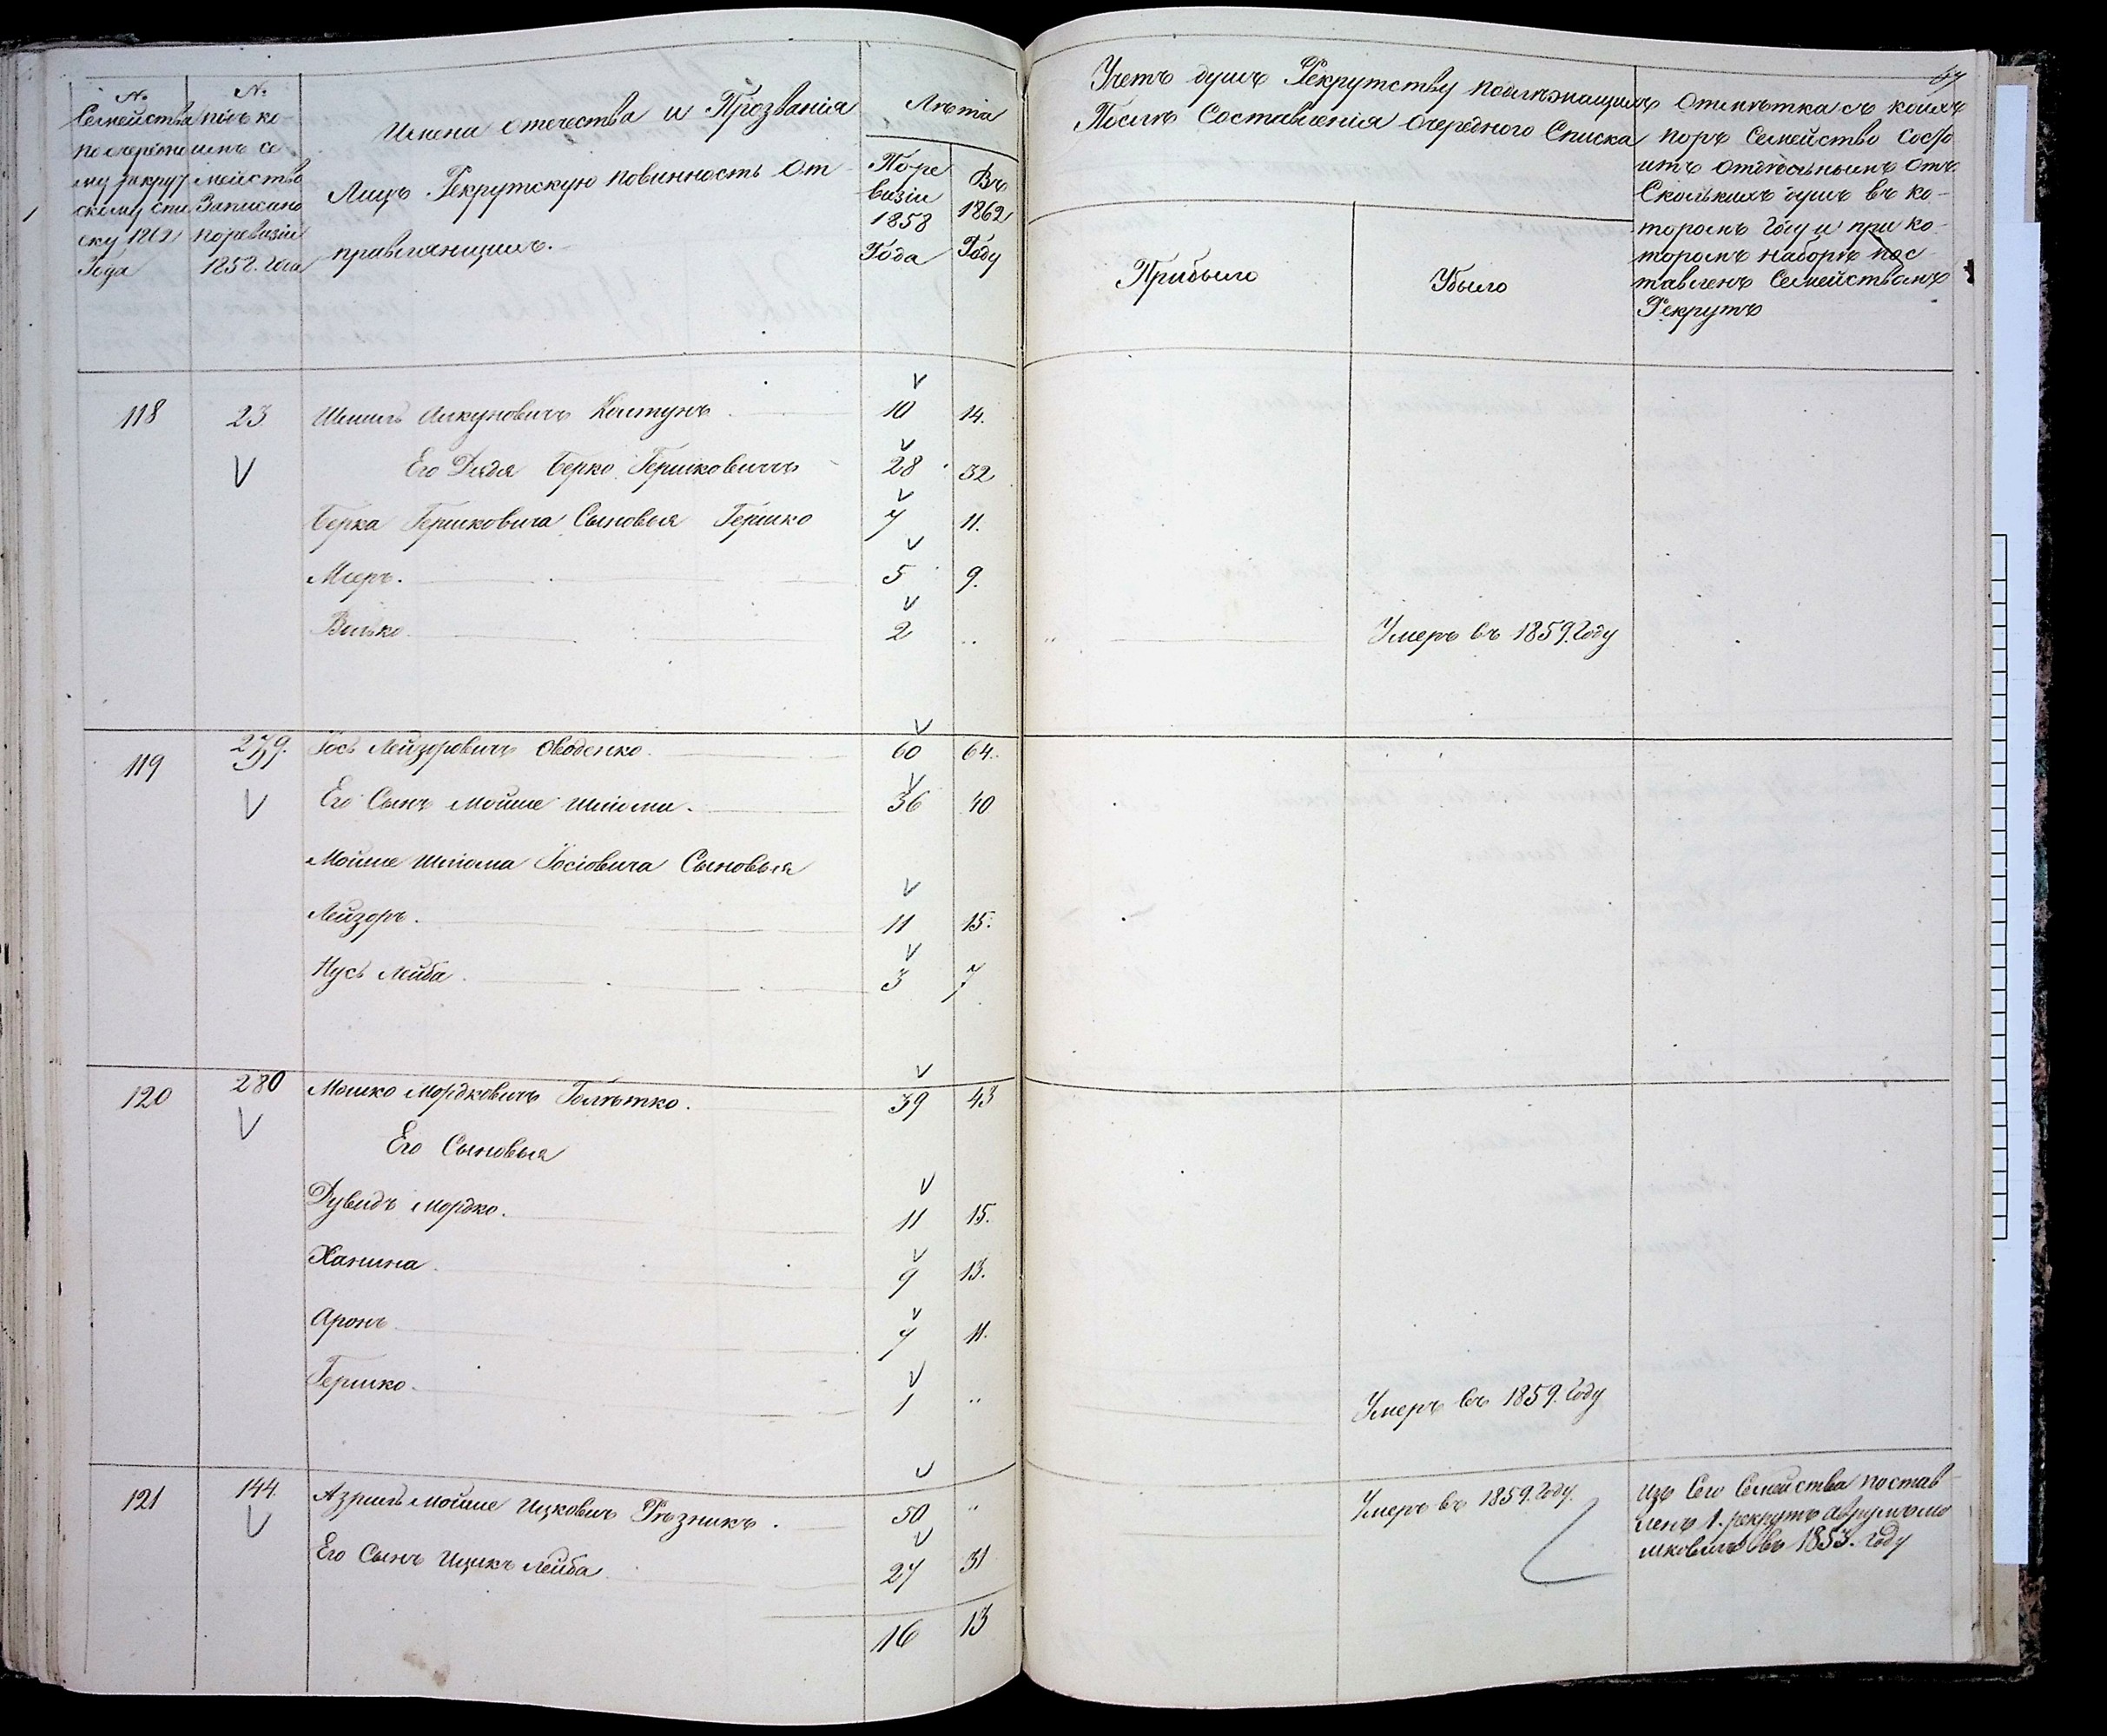 № Семейства по очередному рекрутскому списку 1862 Года
№ подъ коимъ семейство Записано по ревизіи 1858. Года
Имена Отечества и Прозванія
Лицъ Рекрутскую повинность От
правляющихъ.
Лѣта
По ре
визіи
1858
Года
Въ
1862
Году
Учетъ душъ Рекрутству подлежащихъ
Послѣ Составленія Очереднаго Списка
Прибыло
Убыло
Отмѣтка съ коихъ
поръ Семейство Состо
итъ отдѣльнымъ Отъ
Сколькихъ душъ въ ко-
торомъ Году и при ко-
торомъ наборѣ пос
тавленъ Семействомъ
Рекрутъ
118 23 Алкуновичъ Колтунъ 10 14.
Его Дядя Берко Гершковичъ 28 32
Берка Гершковича Сыновья Гершко 7 11.
Меръ. 5 9.
Волько 2 .. Умеръ въ 1859. Году
119 279. Іось Лейзоровичъ Оводенко. 60 64.
Его Сынъ Мойше Шліома. 36 40
Мойше Шліома Іосіовича Сыновья
Лейзоръ. 11 15.
Нусь Лейба. 3 7
120 280 Мошко Мордковичъ Голѣтко. 39 43
Его Сыновья
Дувидъ Мордко. 11 15.
Ханина. 9 13.
Аронъ 7 11.
Гершко. 1 .. Умеръ въ 1859. Году
121 144. Азриль Мойше Ицковичъ Рѣзникъ. 50 .. Умеръ въ 1859. Году. Изъ Сего Семейства постав
ленъ 1. рекрутъ
въ 1853. Году
Его Сынъ Ицикъ Лейба 27 31
16 13